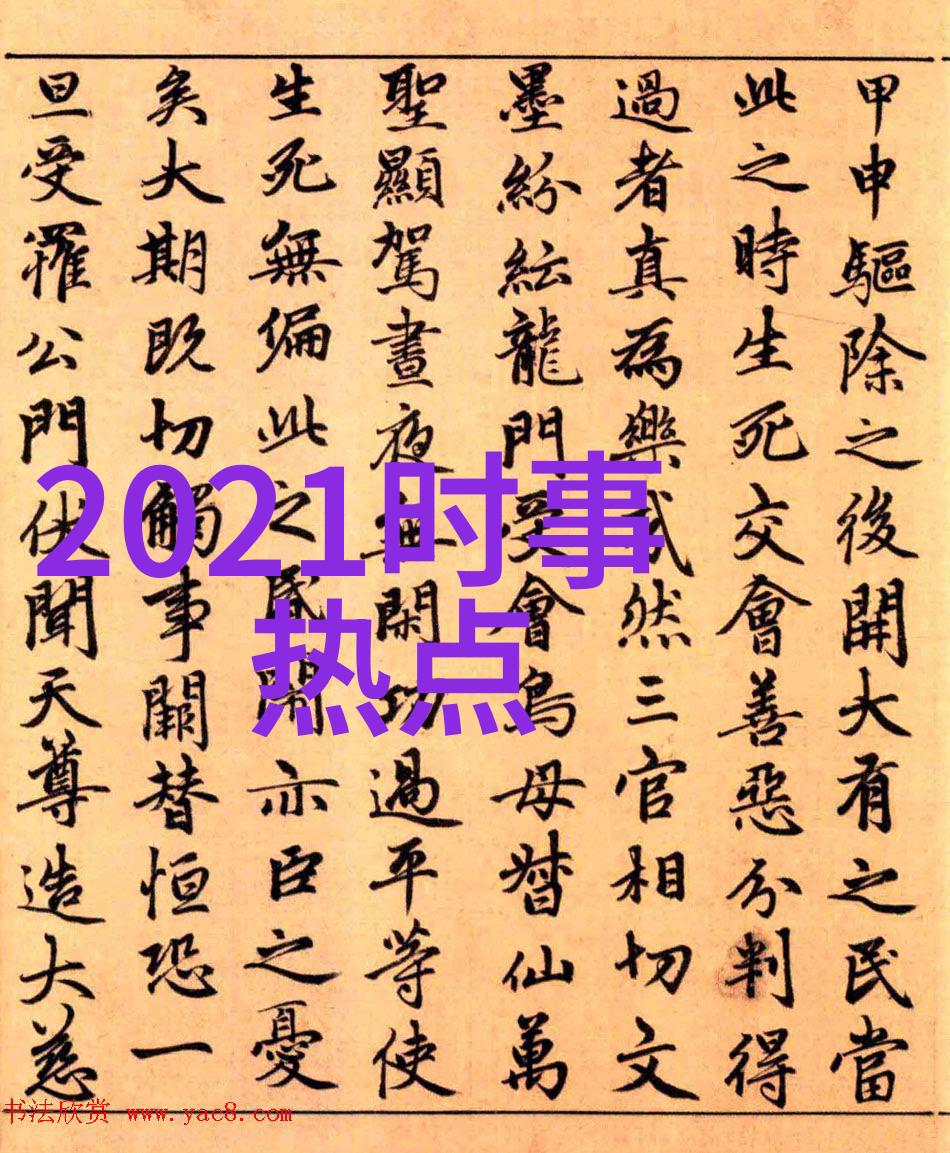 甲申驅除之後開大有之民當
此之時生死交會善惡分判得
過者真為樂哉然三官相切文
墨紛紜龍門受會鳥母督仙萬
聖顯駕晝夜無閑功過平等使
生死無偏此之昏鬧亦臣之憂
矣大期既切觸事闕替恒恐一
旦受罹公門伏聞天尊造大慈
2021时事
热点
书法欣赏 www.yac8.com